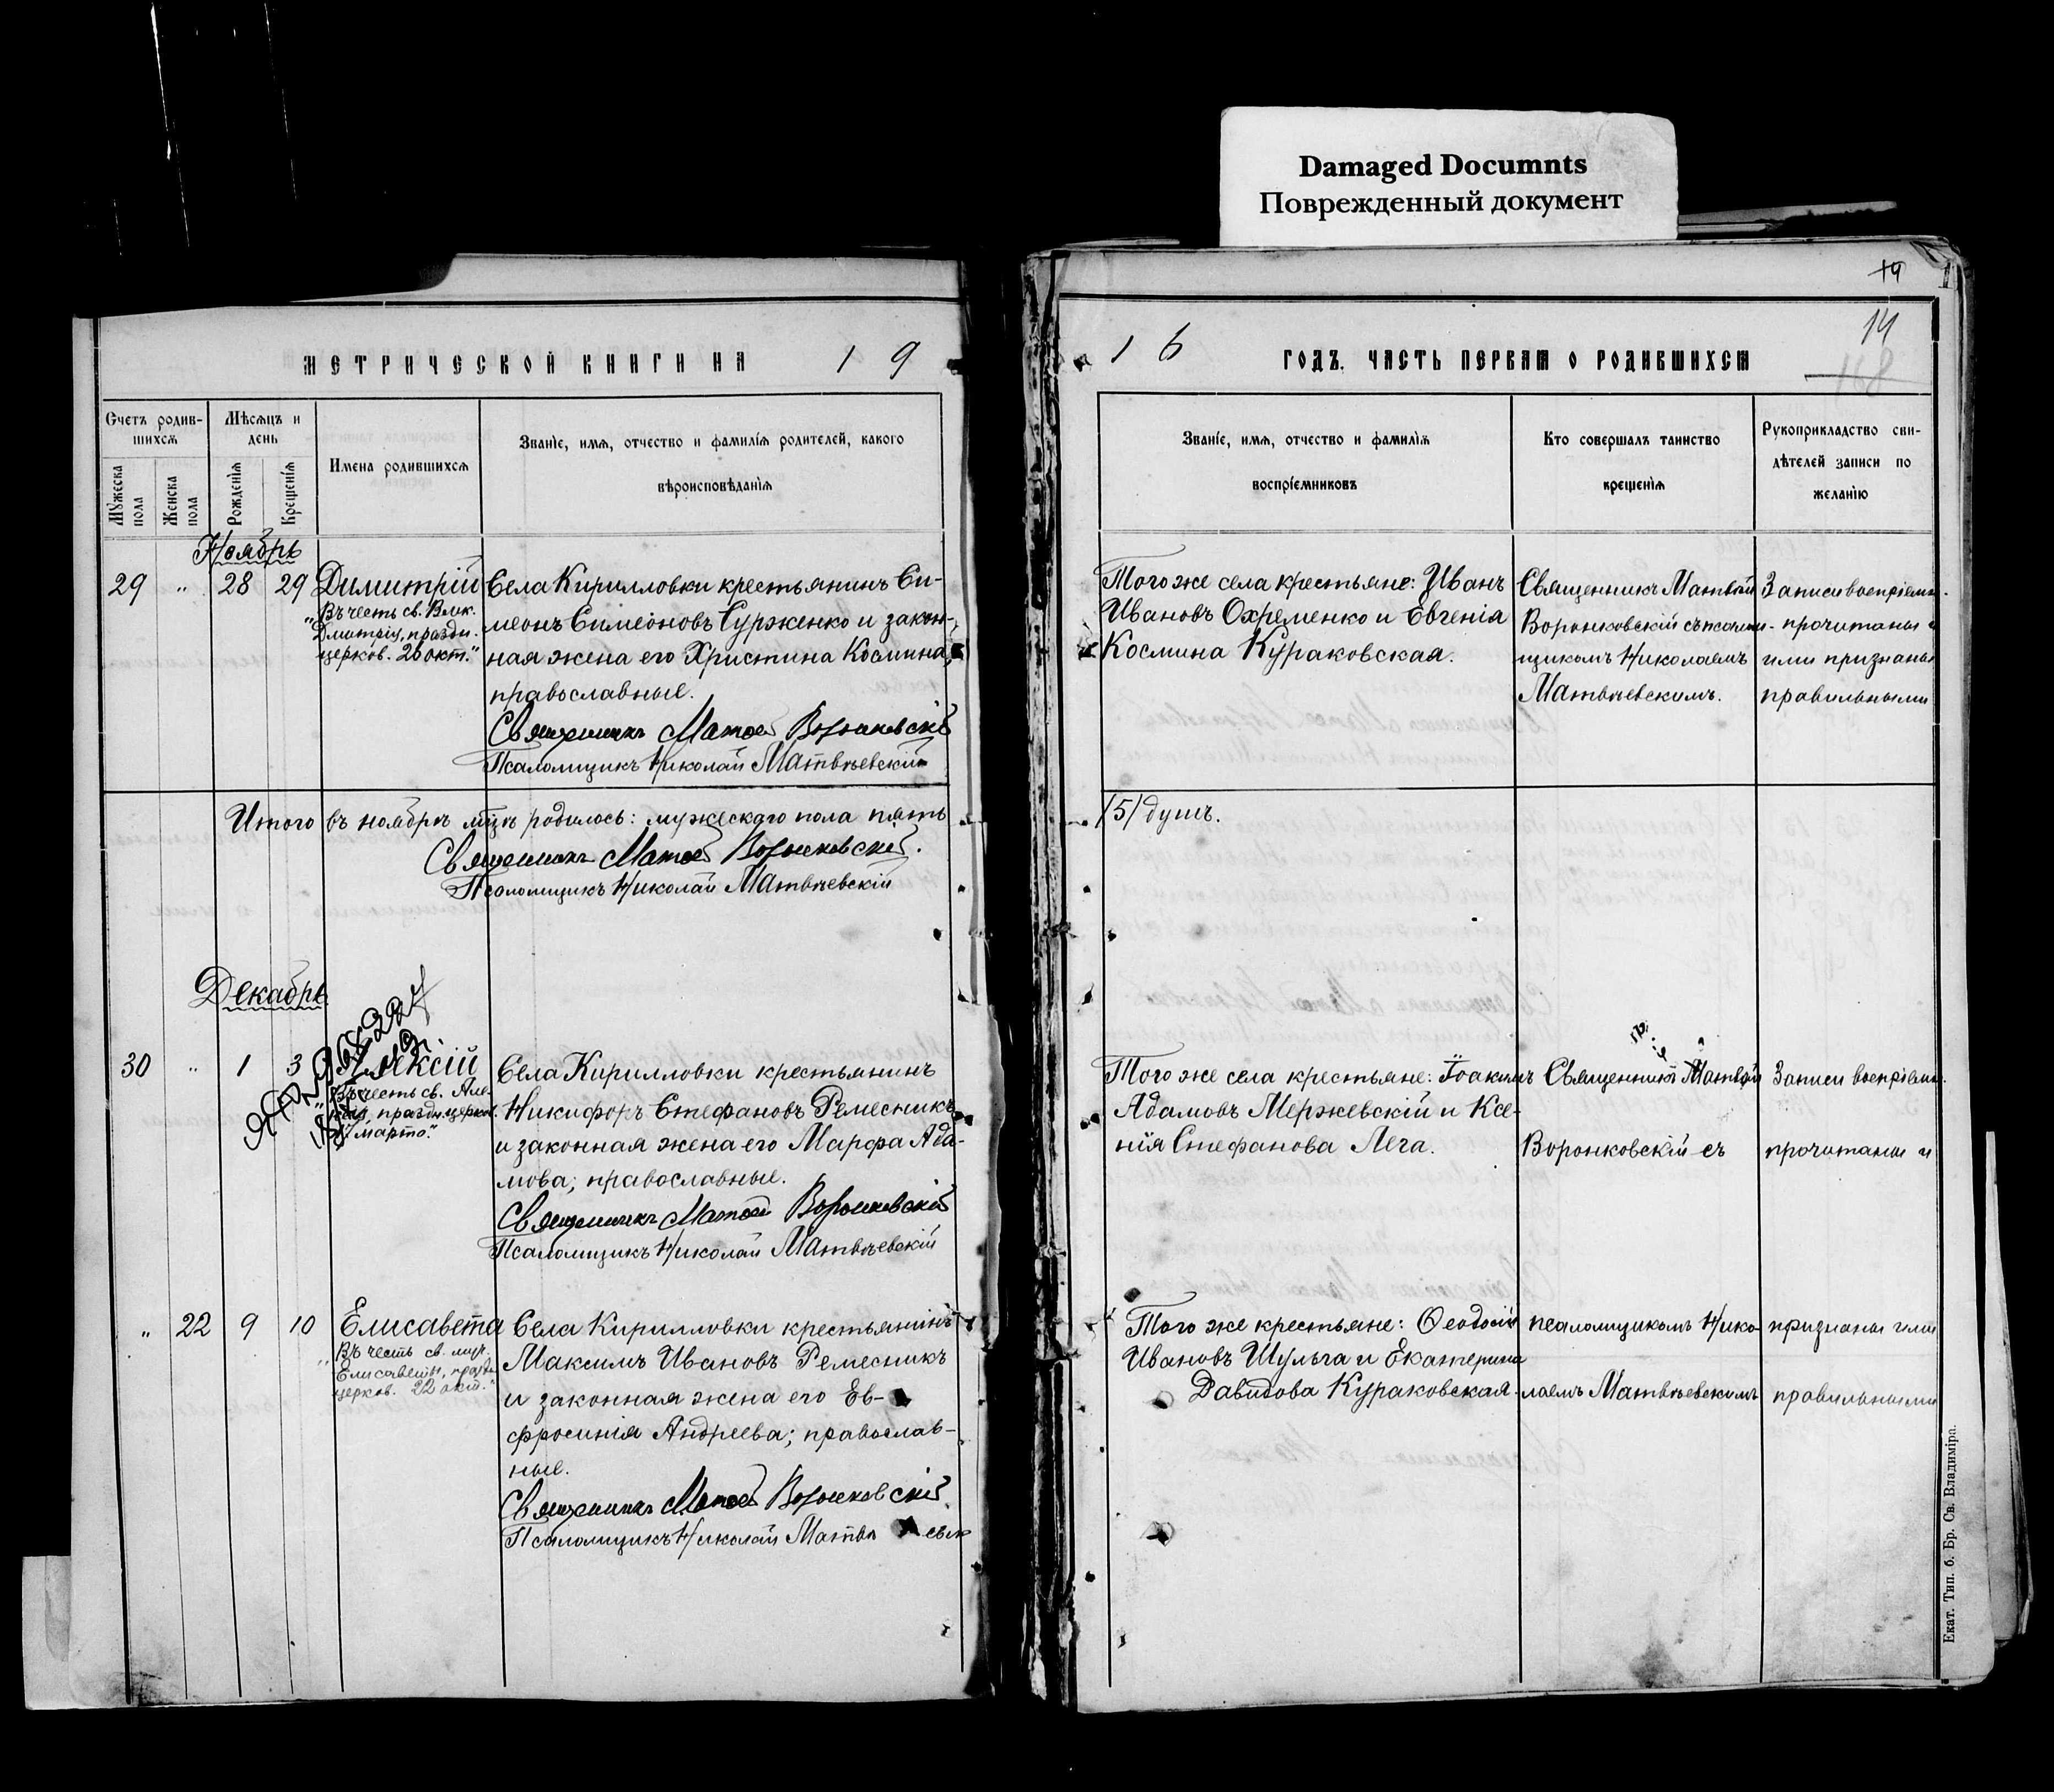 Damaged Documnts
Поврежденный документ
14
14
168
МЕТРИЧЕСКОЙ КНИГИ НА 1 9
Счетъ родив-
шихся
Мѣсяцъ и
день
Имена родившихся
Званіе, имя, отчество и фамилія родителей, какого
вѣроисповѣданія
Мужеска
пола
Женска
пола
Рожденія
Крещенія
Ноябрь
29 " 28 29
Димитрій
"Въ честь св. Влмк.
Дмитрія, праздн.
церков. 26 окт."
Села Кирилловки крестьянинъ Си-
меонъ Симеоновъ Сурженко и закон-
ная жена его Христина Космина;
православные.
Священникъ Матөей Воронковскій
Псаломщикъ Николай Матвѣевскій
Итого въ ноябрѣ мцѣ родилось: мужескаго пола пять
Священникъ Матөей Воронковскій.
Псаломщикъ Николай Матвѣевскій
Декабрь
30 " 1 3
Алексій
"Въ честь св. Але-
ксія, праздн. церков.
17 марта."
Села Кирилловки крестьянинъ
Никифоръ Стефановъ Ремесникъ
и законная жена его Марфа Ада-
мова; православные.
Священникъ Матөей Воронковскій
Псаломщикъ Николай Матвѣевскій
" 22 9 10
Елисавета
"Въ честь св. муч.
Елисаветы, праздн.
церков. 22 окт."
Села Кирилловки крестьянинъ
Максимъ Ивановъ Ремесникъ
и законная жена его Ев-
фросинія Андреева; православ-
ные.
Священникъ Матөей Воронковскій.
Псаломщикъ Николай Матвѣевск
1 6 ГОДЪ. ЧАСТЬ ПЕРВАЯ О РОДИВШИХСЯ
Званіе, имя, отчество и фамилія
воспріемниковъ
Кто совершалъ таинство
крещенія
Рукоприкладство сви-
дѣтелей записи по
желанію
Того же села крестьяне: Иванъ
Ивановъ Охременко и Евгенія
Космина Кураковская.
Священникъ Матвѣй
Воронковскій съ псалом-
щикомъ Николаемъ
Матвѣевскимъ.
Записи воспріемн.
прочитаны и
ими признаны
правильными
/5/ душъ.
Того же села крестьяне: Іоакимъ
Адамовъ Мержевскій и Ксе-
нія Стефанова Лега.
Священникъ Матвѣй
Воронковскій съ
Записи воспріемн.
прочитаны и
Того же крестьяне: Ѳеодосій
Ивановъ Шульга и Екатерина
Давидова Кураковская.
псаломщикомъ Нико-
лаемъ Матвѣевскимъ
признаны ими
правильными
Екат. Тип. б. Бр. Св. Владиміра.